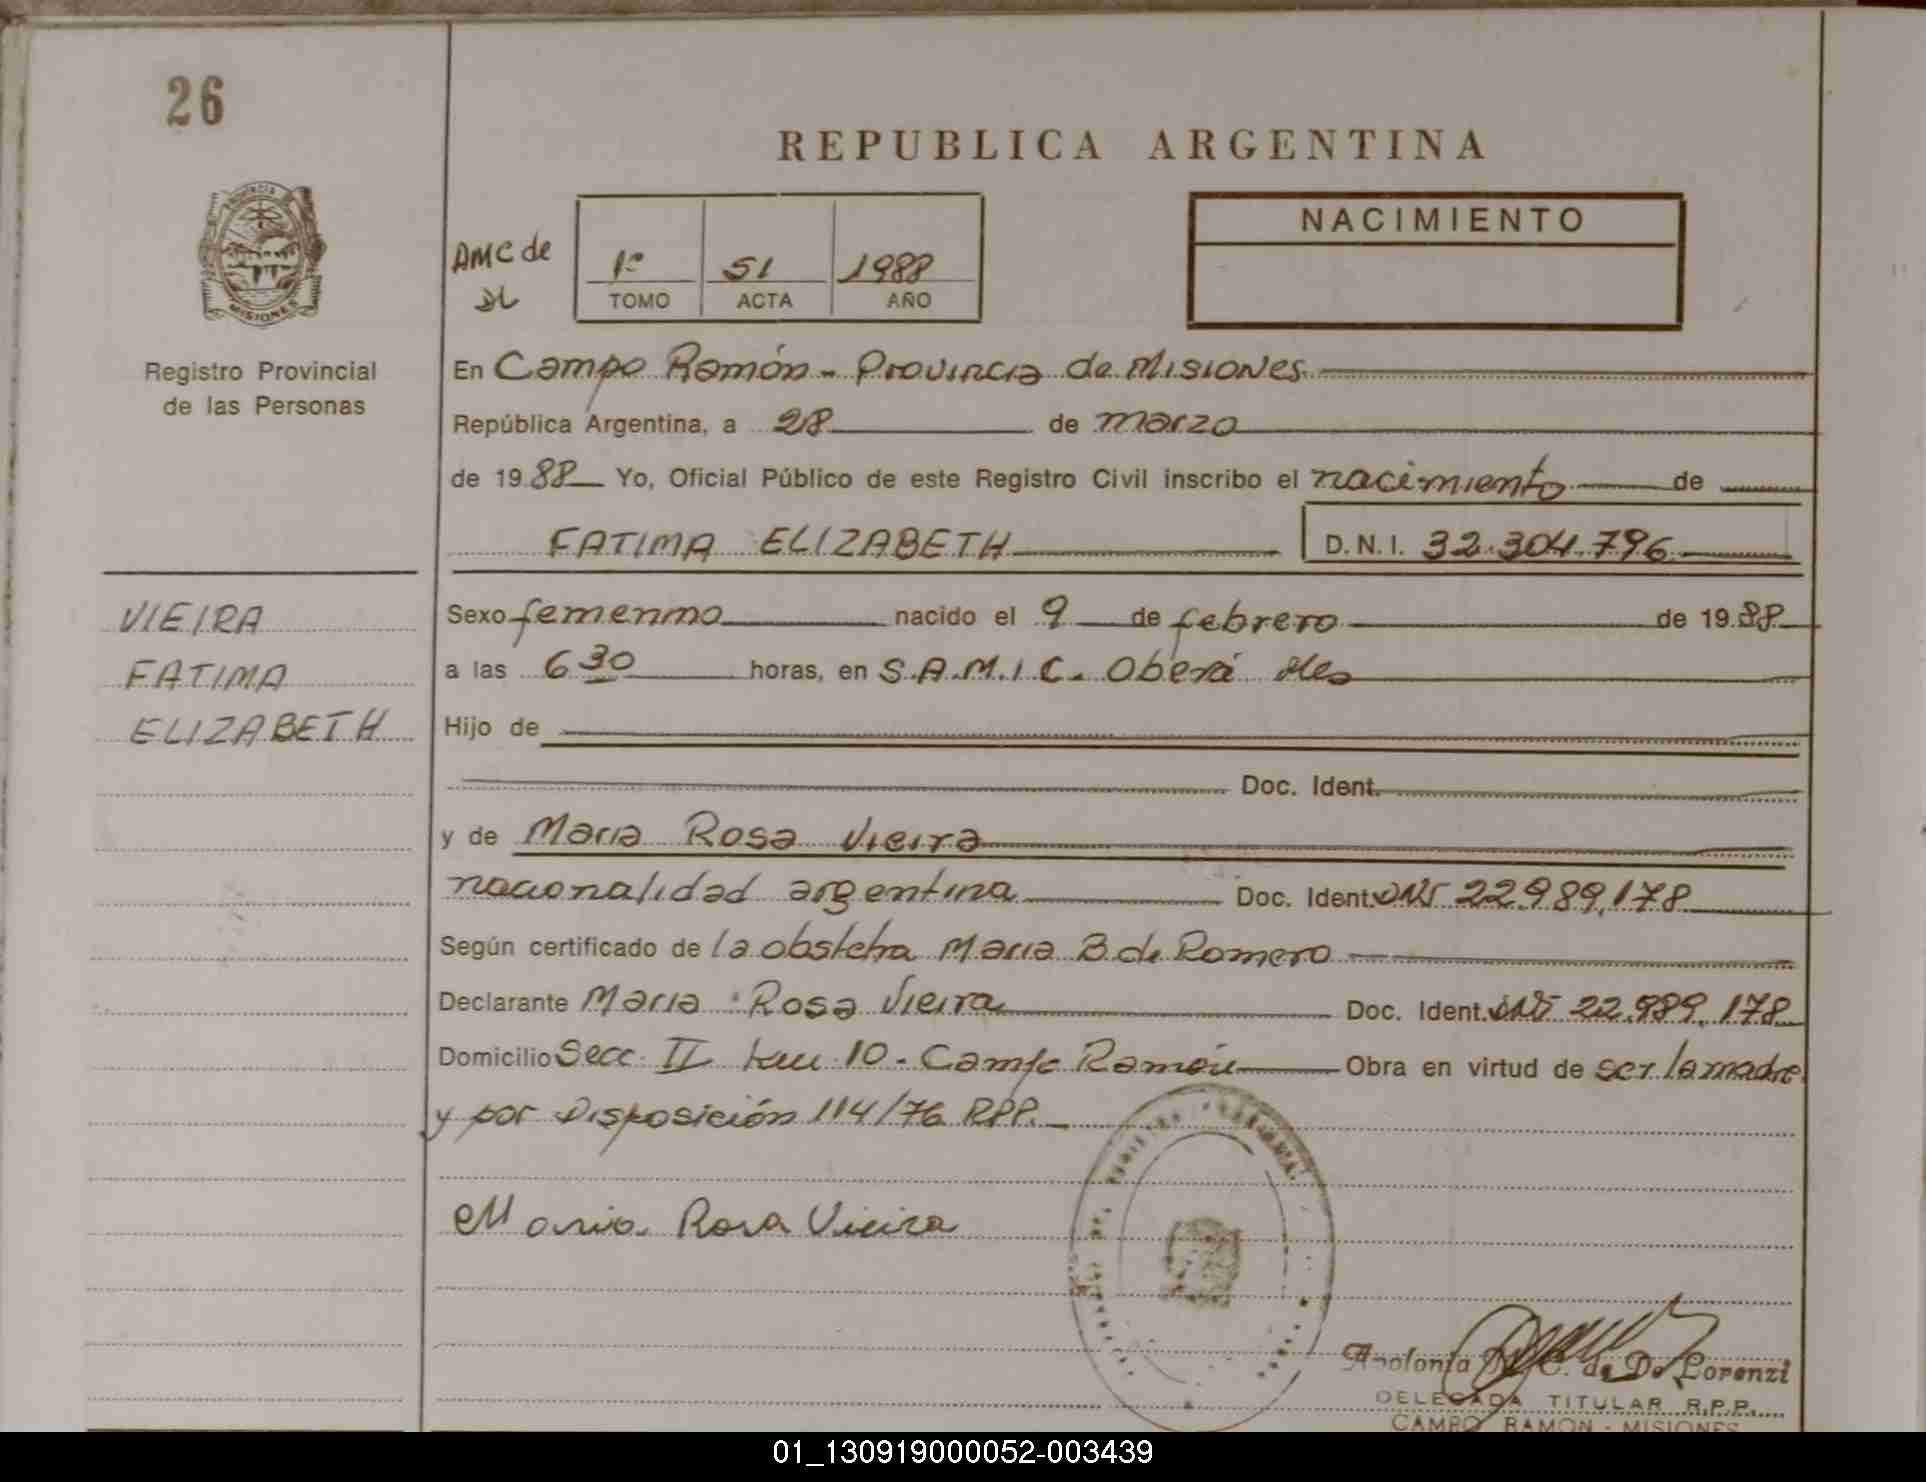 26
REPUBLICA ARGENTINA
PROVINCIA
MISIONES
Registro Provincial
de las Personas
AMC de
DL
1º 51 1988
TOMO ACTA AÑO
NACIMIENTO
En Campo Ramón - Provincia de Misiones
República Argentina, a 28 de marzo
de 1988 Yo, Oficial Público de este Registro Civil inscribo el nacimiento de
FATIMA ELIZABETH D.N.I. 32.304.796
VIEIRA
FATIMA
ELIZABETH
Sexo femenino nacido el 9 de febrero de 1988
a las 6 30 horas, en S.A.M.I.C. Oberá
Hijo de
Doc. Ident.
y de Maria Rosa Vieira
nacionalidad argentina Doc. Ident. DNI 22.989.178
Según certificado de la obstetra Maria B de Romero
Declarante Maria Rosa Vieira Doc. Ident. DNI 22.989.178
Domicilio Secc. II km 10 - Campo Ramón Obra en virtud de ser la madre
y por Disposición 114/76 RPP.
Maria Rosa Vieira
Apolonia M. C. de De Lorenzi
DELEGADA TITULAR R.P.P.
CAMPO RAMON - MISIONES
01_130919000052-003439